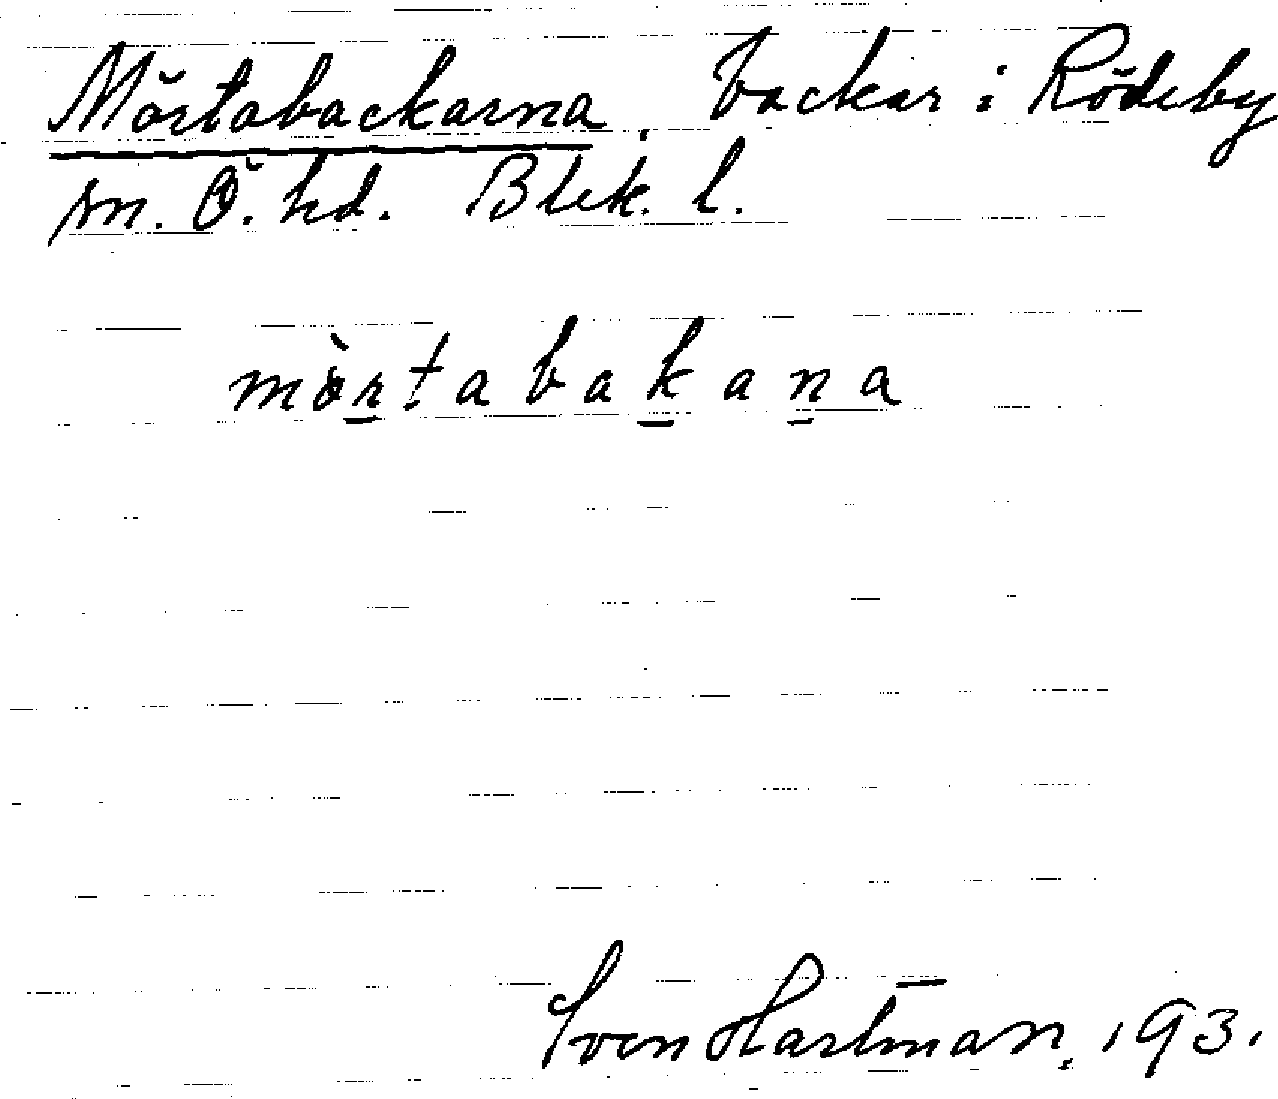 Mörtabackarna. backar i Rödeby
sn. Ö. hd. Blek. l.
mòrtabakana
Sven Hartman. 1931